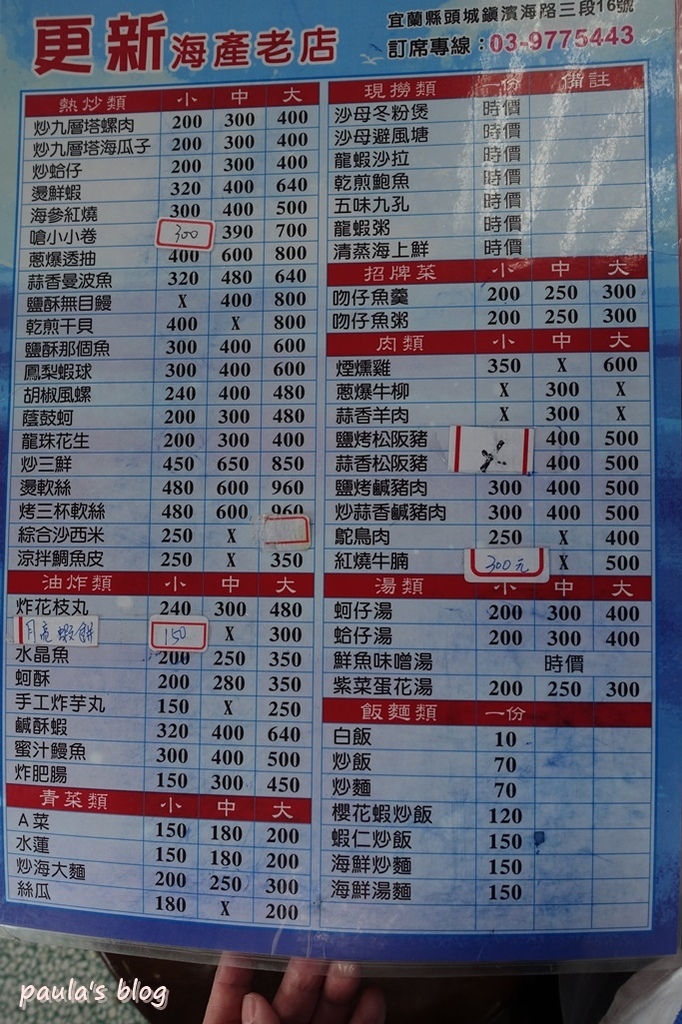 更新海產老店
宜蘭縣頭城鎮濱海路三段16號
訂席專線：03-9775443
熱炒類 小 中 大
炒九層塔螺肉 200 300 400
炒九層塔海瓜子 200 300 400
炒蛤仔 200 300 400
燙鮮蝦 320 400 640
海參紅燒 300 400 500
嗆小小卷 300 390 700
蔥爆透抽 400 600 800
蒜香曼波魚 320 480 640
鹽酥無目鰻 X 400 800
乾煎干貝 400 X 800
鹽酥那個魚 300 400 600
鳳梨蝦球 300 400 600
胡椒風螺 240 400 480
蔭鼓蚵 200 300 480
龍珠花生 200 300 400
炒三鮮 450 650 850
燙軟絲 480 600 960
烤三杯軟絲 480 600 960
綜合沙西米 250 X
涼拌鯛魚皮 250 X 350
油炸類 小 中 大
炸花枝丸 240 300 480
月亮蝦餅 150 X 300
水晶魚 200 250 350
蚵酥 200 280 350
手工炸芋丸 150 X 250
鹹酥蝦 320 400 640
蜜汁鰻魚 300 400 500
炸肥腸 150 300 450
青菜類 小 中 大
A菜 150 180 200
水蓮 150 180 200
炒海大麵 200 250 300
絲瓜 180 X 200
現撈類 一份 備註
沙母冬粉煲 時價
沙母避風塘 時價
龍蝦沙拉 時價
乾煎鮑魚 時價
五味九孔 時價
龍蝦粥 時價
清蒸海上鮮 時價
招牌菜 小 中 大
吻仔魚羹 200 250 300
吻仔魚粥 200 250 300
肉類 小 中 大
煙燻雞 350 X 600
蔥爆牛柳 X 300 X
蒜香羊肉 X 300 X
鹽烤松阪豬 X 400 500
蒜香松阪豬 400 500
鹽烤鹹豬肉 300 400 500
炒蒜香鹹豬肉 300 400 500
鴕鳥肉 250 X 400
紅燒牛腩 300元 X 500
湯類 小 中 大
蚵仔湯 200 300 400
蛤仔湯 200 300 400
鮮魚味噌湯 時價
紫菜蛋花湯 200 250 300
飯麵類 一份
白飯 10
炒飯 70
炒麵 70
櫻花蝦炒飯 120
蝦仁炒飯 150
海鮮炒麵 150
海鮮湯麵 150
paula's blog